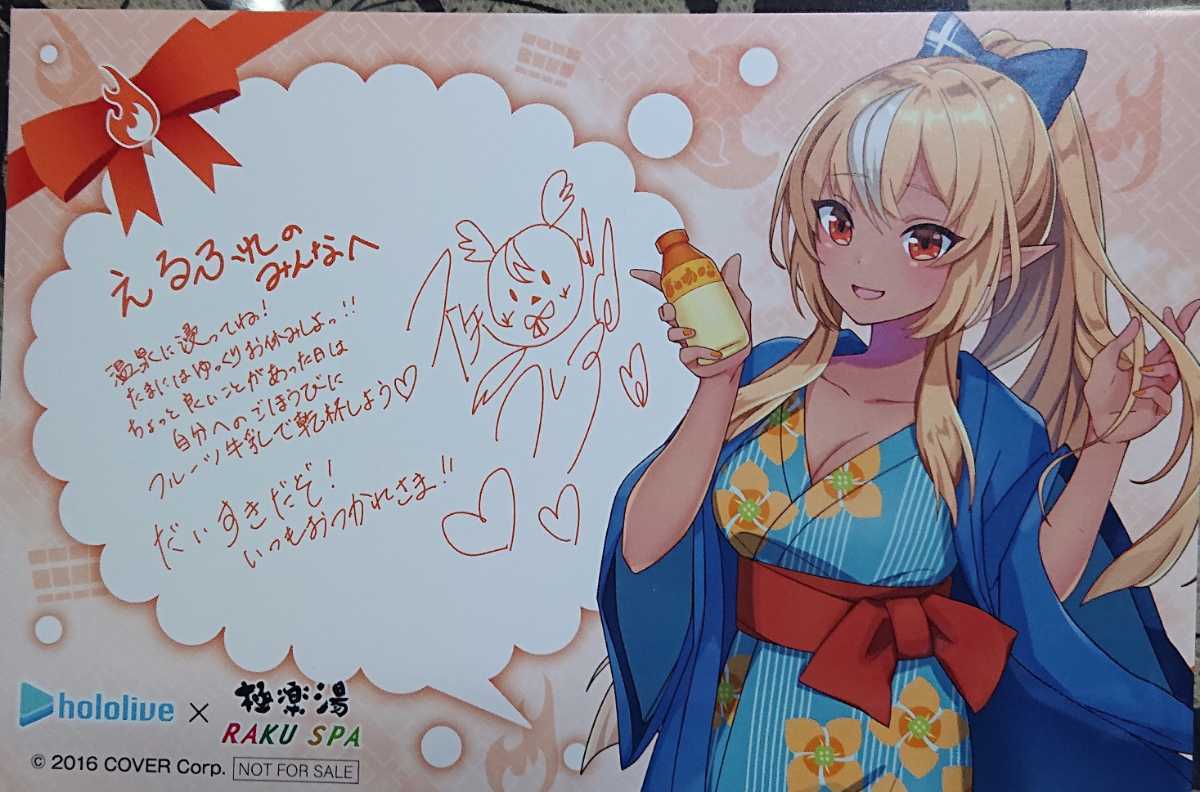 えるふれの
みんなへ
温泉に浸ってね！
たまにはゆっくりお休みしよっ！！
ちょっと良いことがあった日は
自分へのごほうびに
フルーツ牛乳で乾杯しよう♡
だいすきだぞ！
いつもおつかれさま！！
hololive × 極楽湯
RAKU SPA
© 2016 COVER Corp. NOT FOR SALE